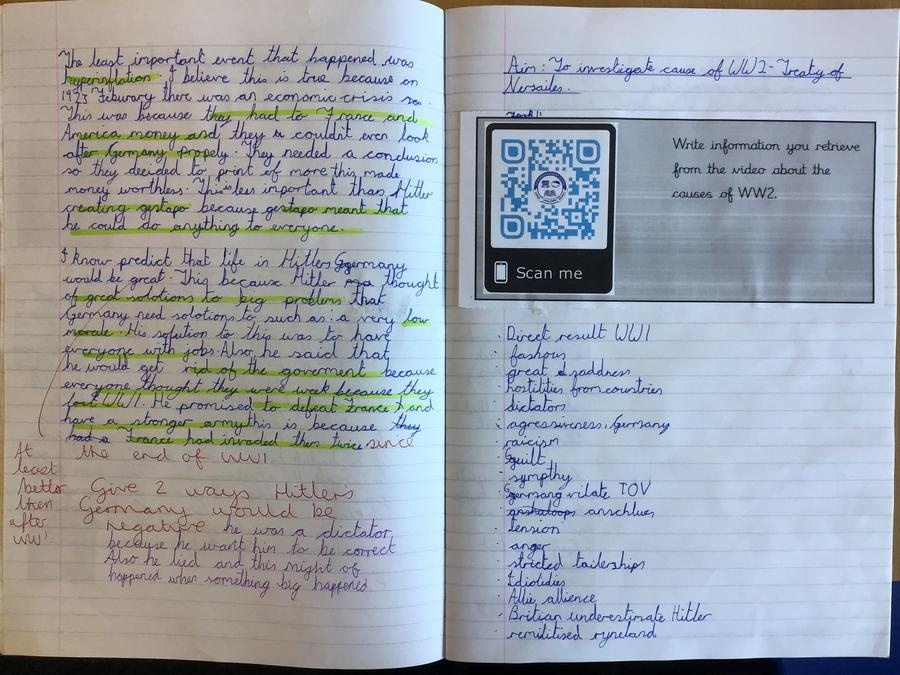 The least important event that happened was
hyperinflation. I believe this is true because on
1923 Feburary there was an economic crisis so.
This was because they had to France and
America money and they couldn't even look
after Germany propely. They needed a conclusion
so they decided to print of more this made
money worthless. This is less important than Hitler
creating gestapo because gestapo meant that
he could do anything to everyone.
I know predict that life in Hitlers Germany
would be great. This because Hitler thought
of great solotions to big problems that
Germany need solotions to such as: a very low
morale. His solution to this was to have
everyone with jobs. Also, he said that
he would get rid of the goverment because
everyone thought they were weak because they
lost WW1. He promised to defeat France and
have a stronger army this is because they
had a France had invaded them twice since
the end of WW1
At
least
better
then
after
WW1
Give 2 ways Hitler's
Germany would be
negative he was a dictator
because he want him to be correct
Also he lied and this might of
happened when something big happened
Aim: To investigate cause of WW2-Treaty of
Versailes.
Task 1:
Write information you retrieve
from the video about the
causes of WW2.
Scan me
· Direct result WW1
· fashous
· great saddness
· hostilities from countries
· dictators
· agressiveness, Germany
· raicism
· Guilt
· sympthy
· germany vilate TOV
· anschlues
· tension
· anger
· stricted tailerships
· Idiotidies
· Allie allience
· Britian underestimate Hitler
· remilitised ryneland